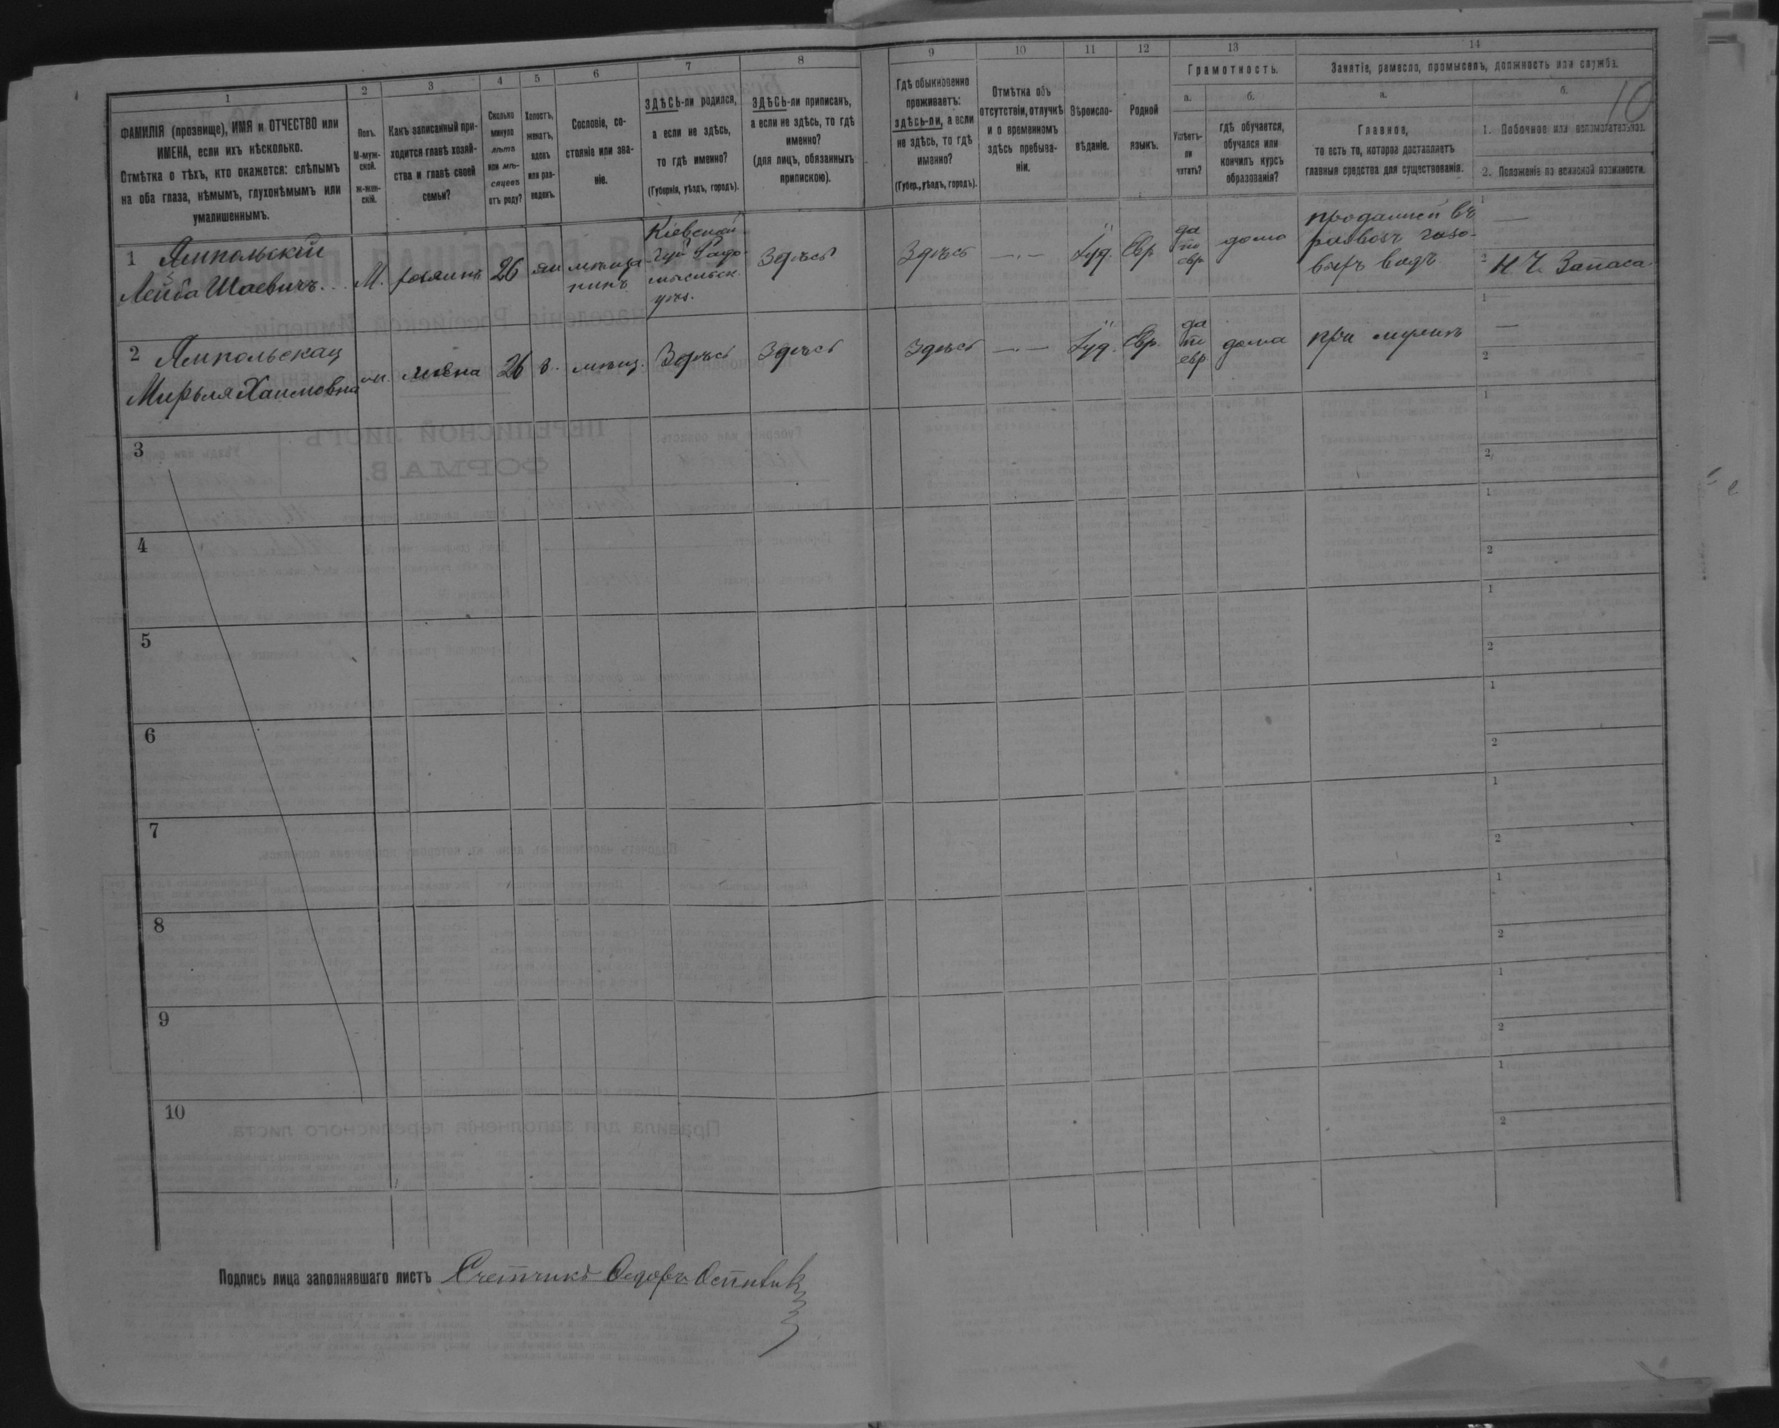 10
1 2 3 4 5 6 7 8 9 10 11 12 13 14
ФАМИЛІЯ (прозвище), ИМЯ и ОТЧЕСТВО или
ИМЕНА, если ихъ нѣсколько.
Отмѣтка о тѣхъ, кто окажется: слѣпымъ
на оба глаза, нѣмымъ, глухонѣмымъ или
умалишеннымъ.
Полъ.
М-муж-
ской.
ж-жен-
скій.
Какъ записанный при-
ходится главѣ хозяй-
ства и главѣ своей
семьи?
Сколько
минуло
лѣтъ
или мѣ-
сяцевъ
отъ роду?
Холостъ,
женатъ,
вдовъ
или раз-
веденъ.
Сословіе, со-
стояніе или зва-
ніе.
ЗДѢСЬ-ли родился,
а если не здѣсь,
то гдѣ именно?
(Губернія, уѣздъ, городъ).
ЗДѢСЬ-ли приписанъ,
а если не здѣсь, то гдѣ
именно?
(для лицъ, обязанныхъ
припискою).
Гдѣ обыкновенно
проживаетъ:
здѣсь-ли, а если
не здѣсь, то гдѣ
именно?
(Губер., уѣздъ, городъ).
Отмѣтка объ
отсутствіи, отлучкѣ
и о временномъ
здѣсь пребыва-
ніи.
Вѣроиспо-
вѣданіе.
Родной
языкъ.
Грамотность.
а.
Умѣетъ-
ли
читать?
б.
гдѣ обучается,
обучался или
кончилъ курсъ
образованія?
Занятіе, ремесло, промыселъ, должность или служба.
а.
Главное,
то есть то, которое доставляетъ
главныя средства для существованія.
б.
1. Побочное или вспомогательное.
2. Положеніе по воинской повинности.
1 Ямпольскій
Лейба Шаевичъ
М.
хозяинъ
26
жен
мѣща
нинъ
Кіевской
Губ Радо-
мысльск
уѣз.
Здѣсь
Здѣсь
— —
Іуд.
Евр
да
по
евр
дома
въ
развозъ
водъ
1 —
2 Н Ч. Запаса
2 Ямпольская
Мирьля Хаимовна
ж.
жена
26
з.
мѣщ.
Здѣсь
Здѣсь
Здѣсь
— —
Іуд.
Евр.
да
по
евр
дома
при мужѣ
1 —
2
3 1 2
4 1 2
5 1 2
6 1 2
7 1 2
8 1 2
9 1 2
10 1 2
Подпись лица заполнявшаго листъ Счетчикъ